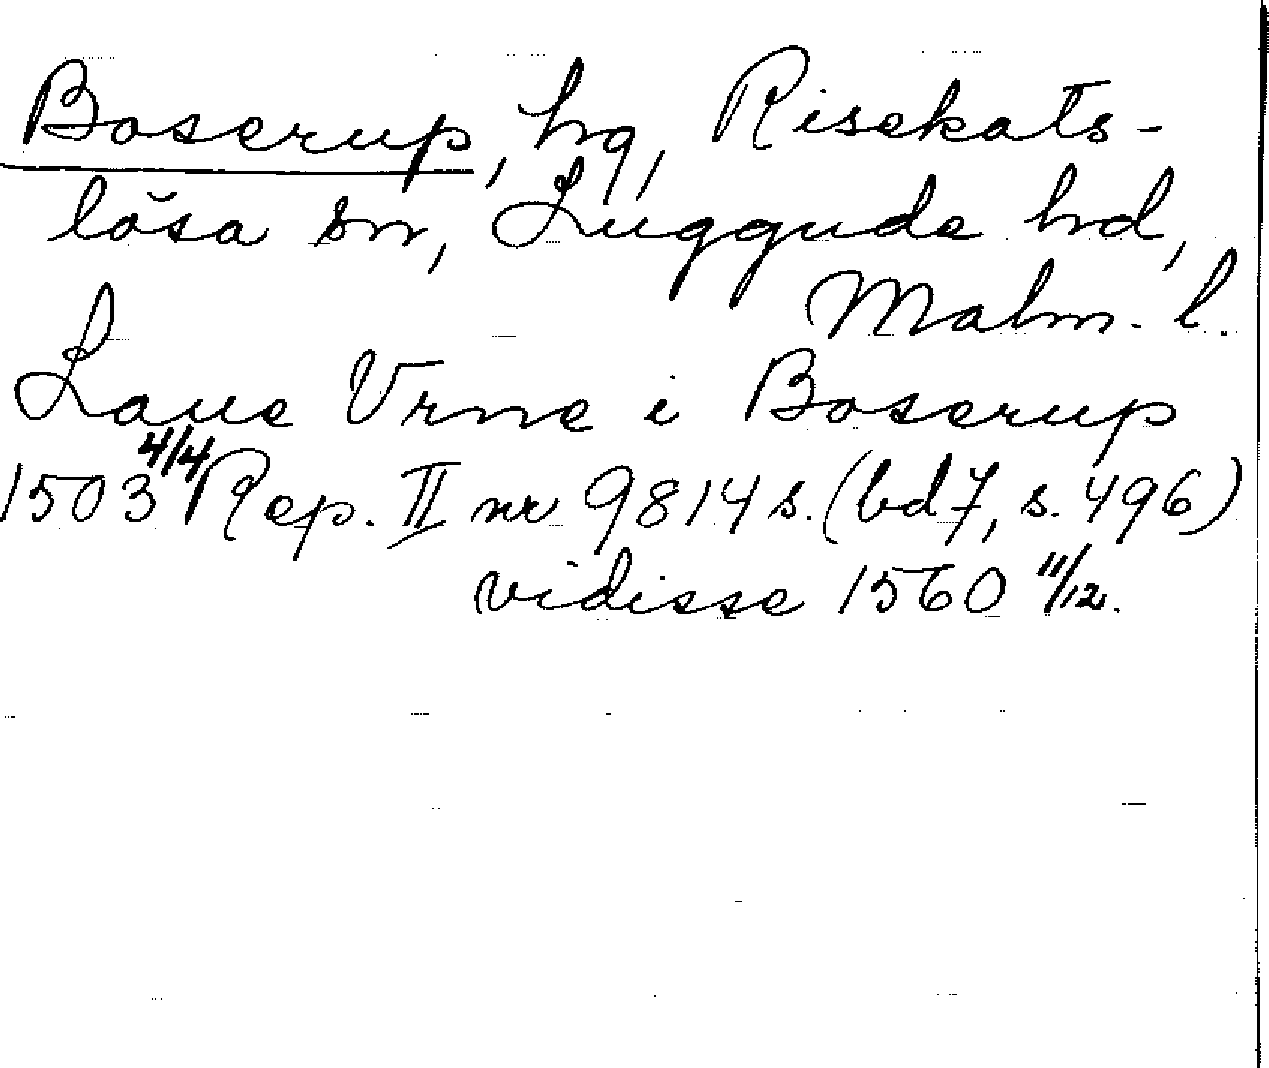 Boserup, hg, Risekats-
lösa sn, Luggude hd,
Malm. l.
Laue Vrne i Boserup
1503 4/4 Rep. II nr 9814 s. (bd 7, s. 496)
vidisse 1560 11/12.